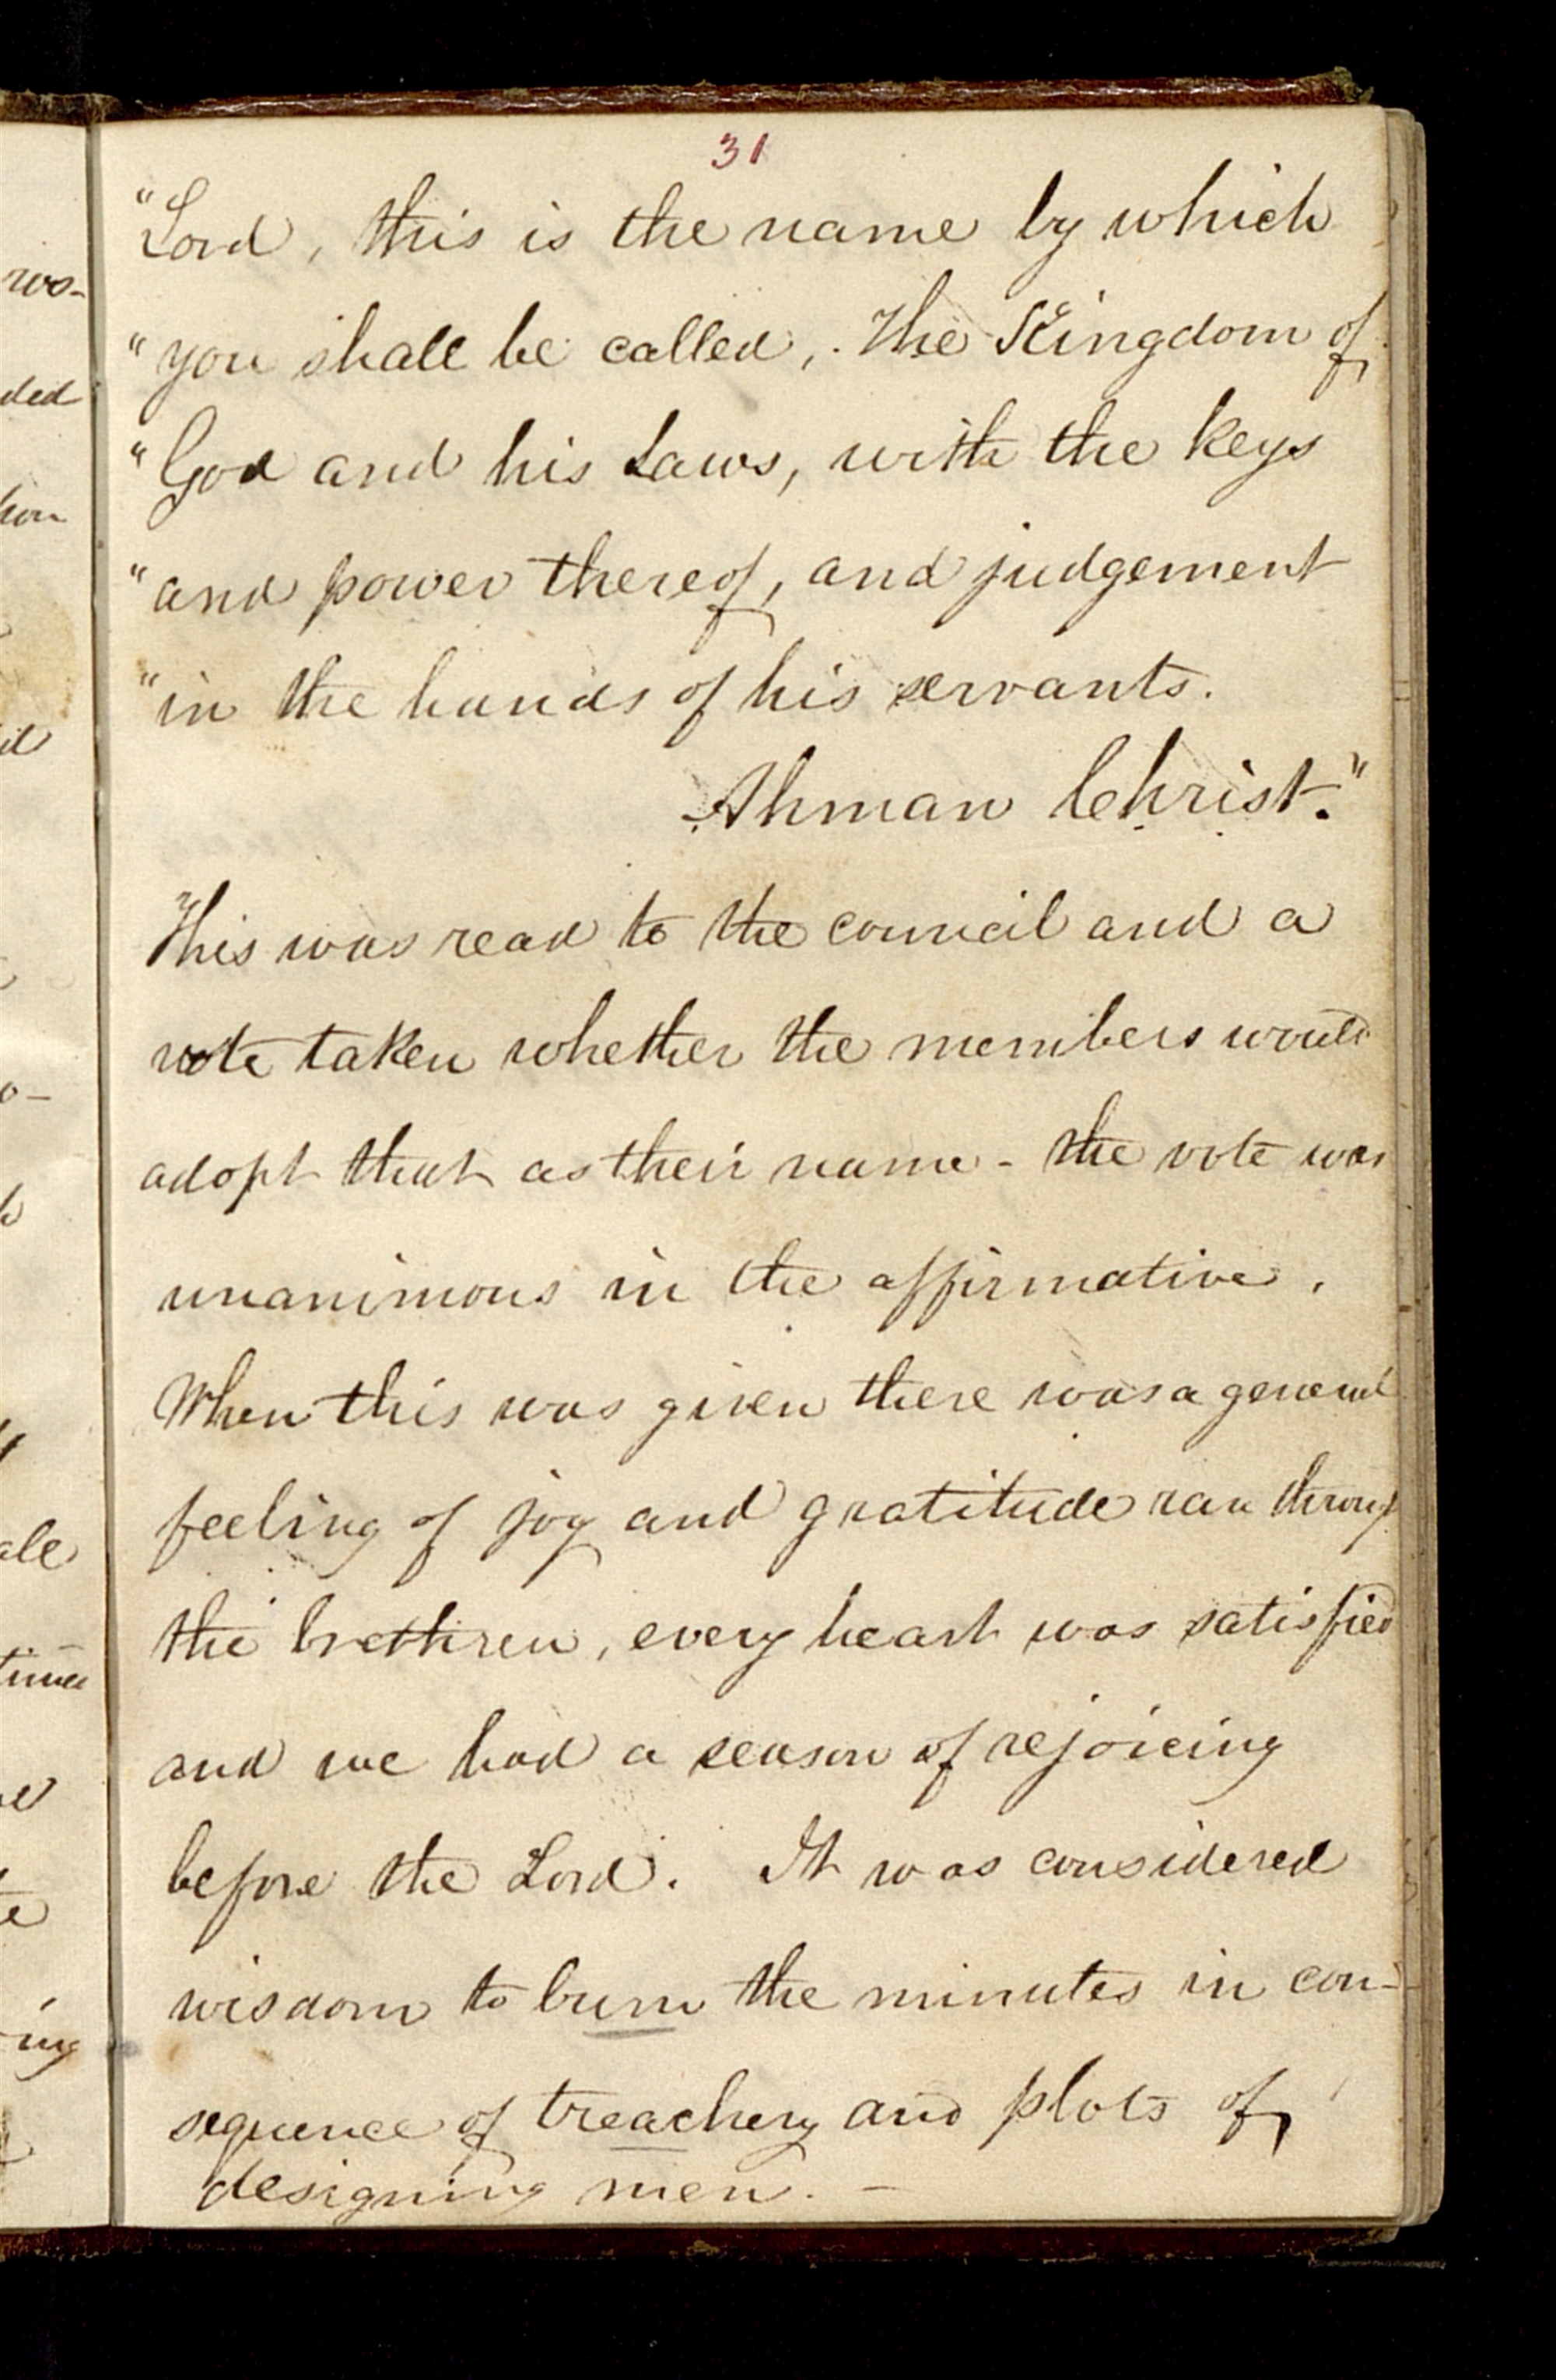 31
"Lord, this is the name by which
"you shall be called, The Kingdom of
"God and his Laws, with the keys
"and power thereof, and judgement
"in the hands of his servants.
Ahman Christ."
This was read to the council and a
vote taken whether the members would
adopt that as their name - the vote was
unanimous in the affirmative.
When this was given there was a general
feeling of joy and gratitude ran throug
the brethren, every heart was satisfied
and we had a season of rejoicing
before the Lord. It was considered
wisdom to burn the minutes in con-
sequence of treachery and plots of
designing men. —